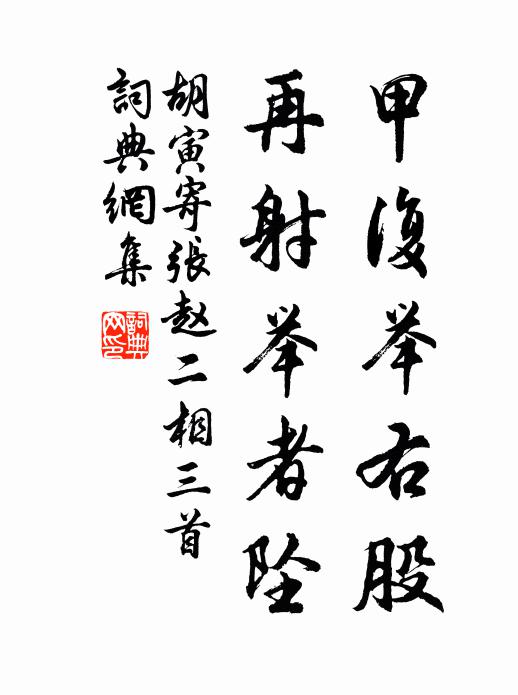 甲復举右股
再射举者坠
胡寅寄張赵二相三首
詞典網集
詞典网印